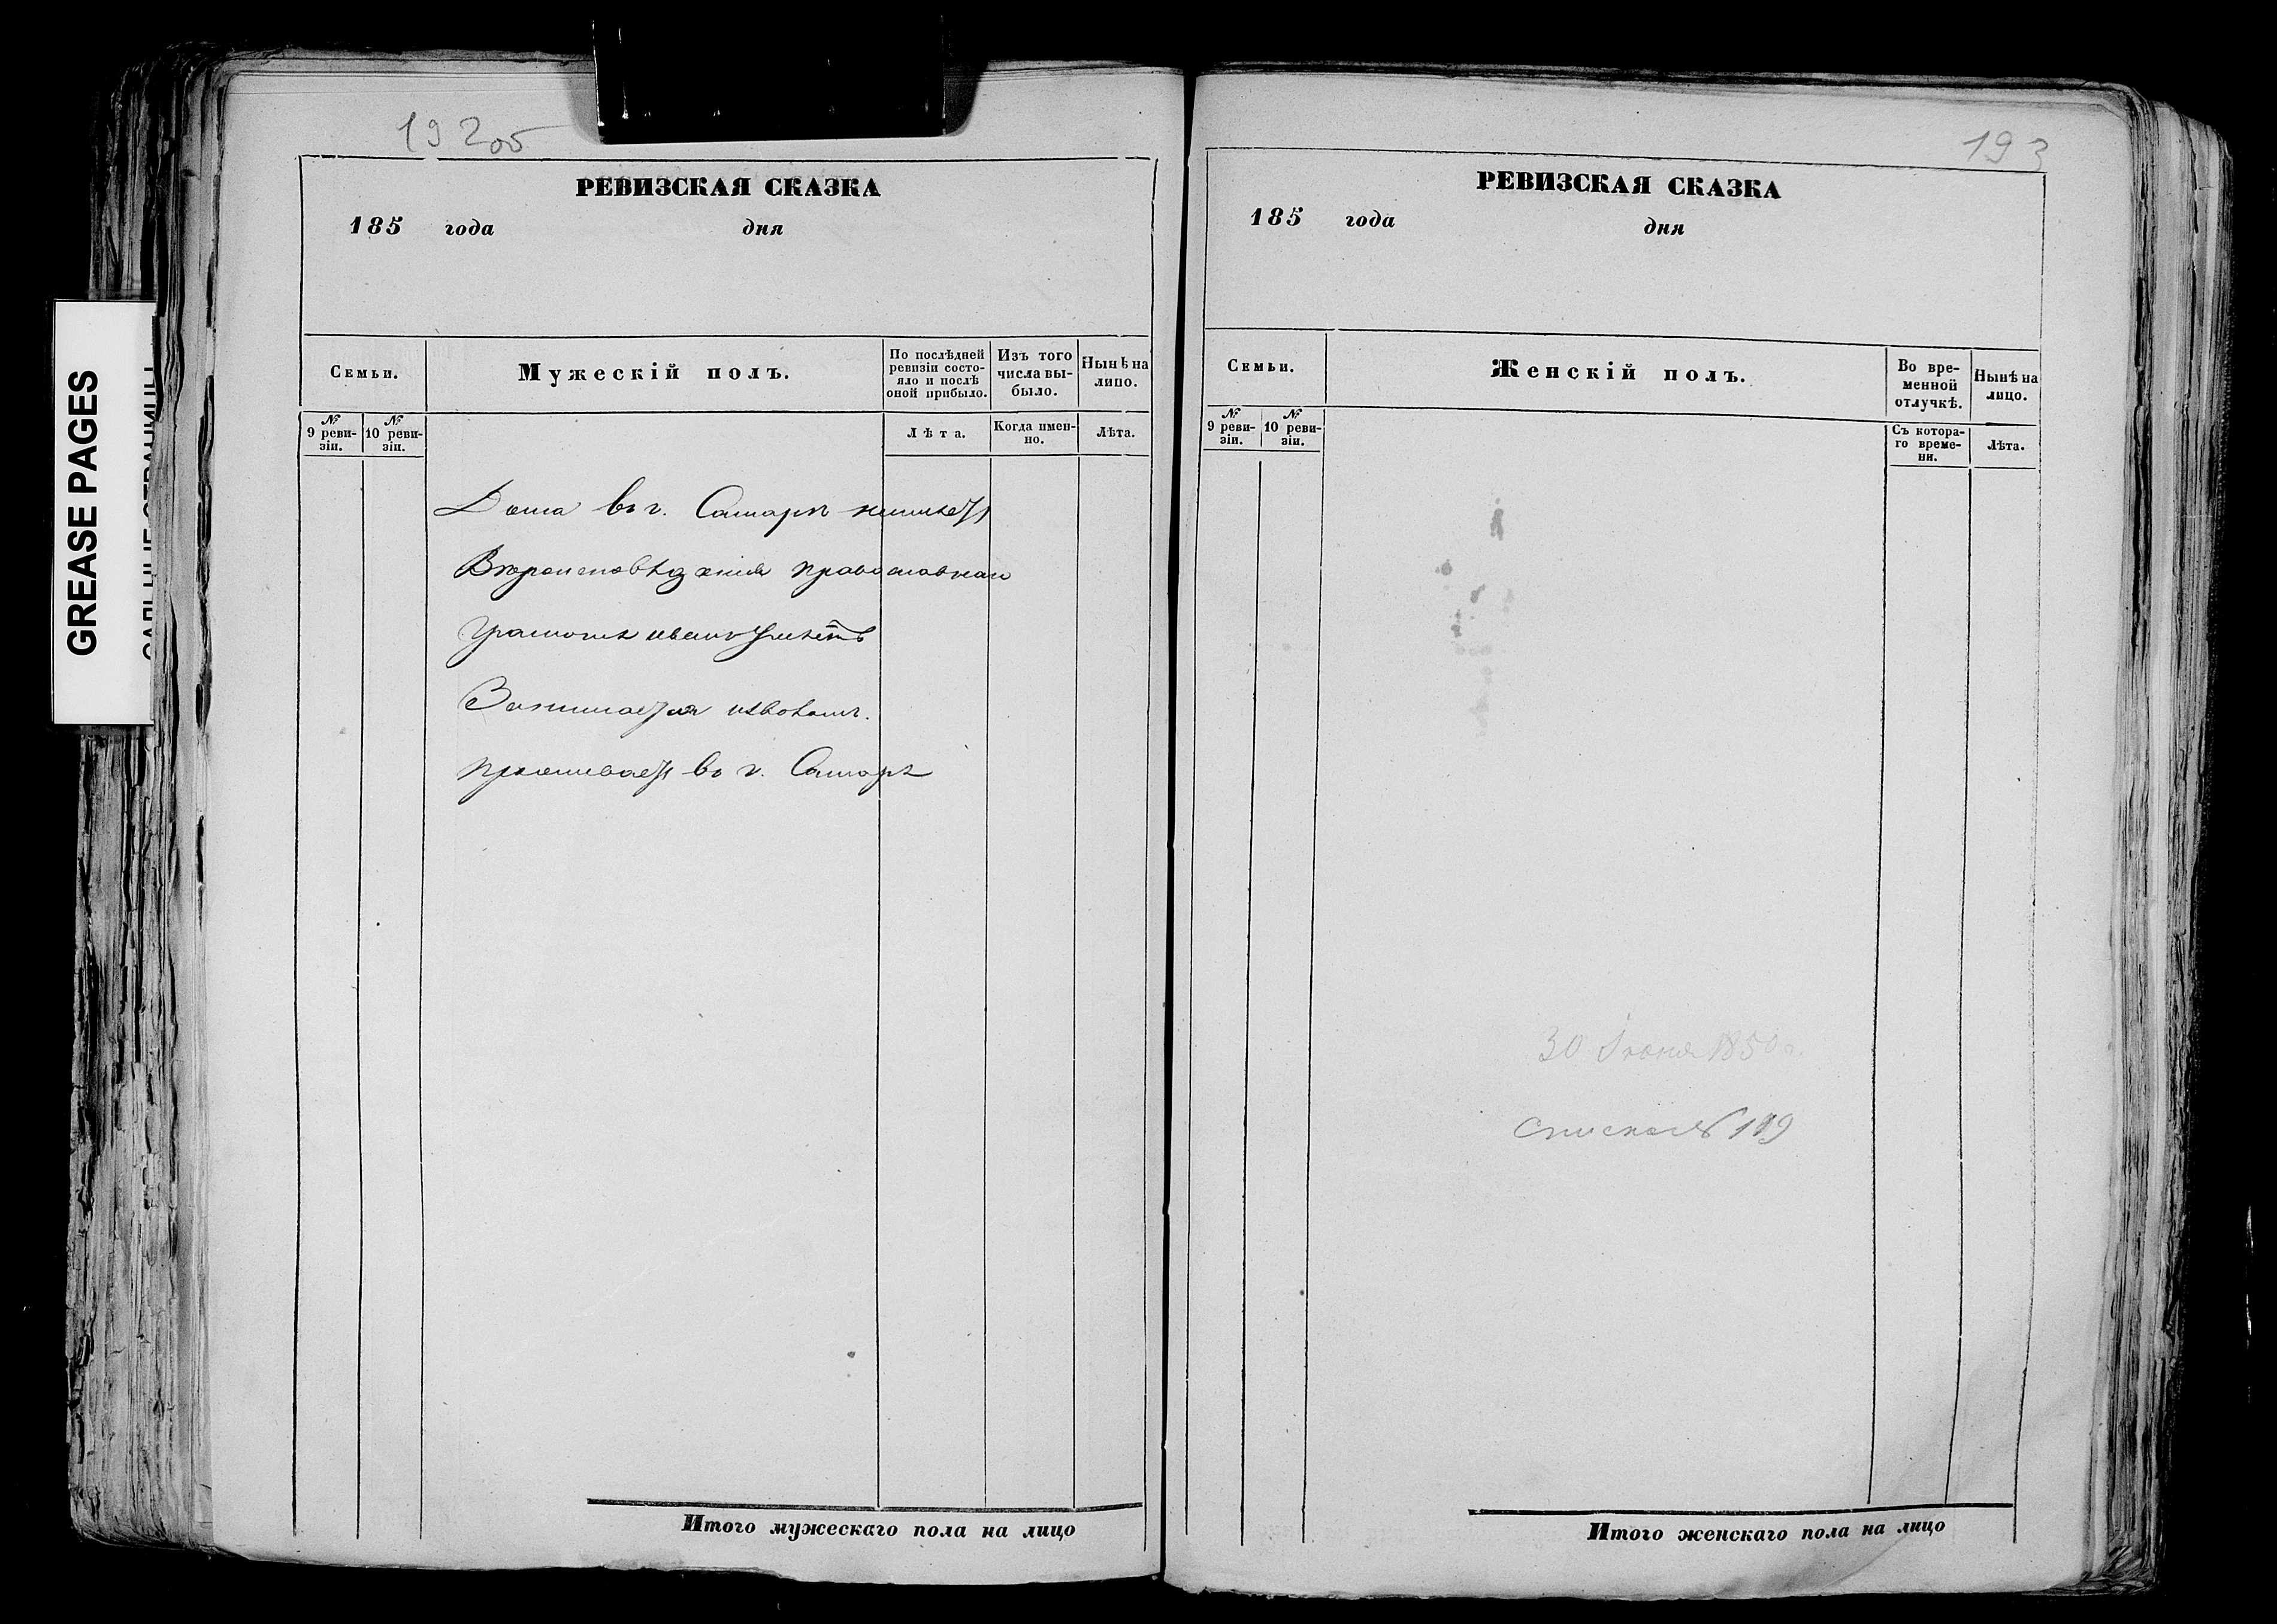 192об
РЕВИЗСКАЯ СКАЗКА
185 года дня
Семьи.
Мужескій полъ.
По послѣдней ревизіи состояло и послѣ оной прибыло.
Изъ того числа выбыло.
Нынѣ на лицо.
№ 9 ревизіи.
№ 10 ревизіи.
Лѣта.
Когда именно.
Лѣта.
Дома въ г. Самарѣ неимѣет
Вѣроисповѣданія православнаго
Грамотѣ неумѣетъ
Занимается извозомъ.
проживает въ г. Самарѣ
Итого мужескаго пола на лицо
193
РЕВИЗСКАЯ СКАЗКА
185 года дня
Семьи.
Женскій полъ.
Во временной отлучкѣ.
Нынѣ на лицо.
№ 9 ревизіи.
№ 10 ревизіи.
Съ котораго времени.
Лѣта.
30 Іюня 1850 г.
Итого женскаго пола на лицо
GREASE PAGES